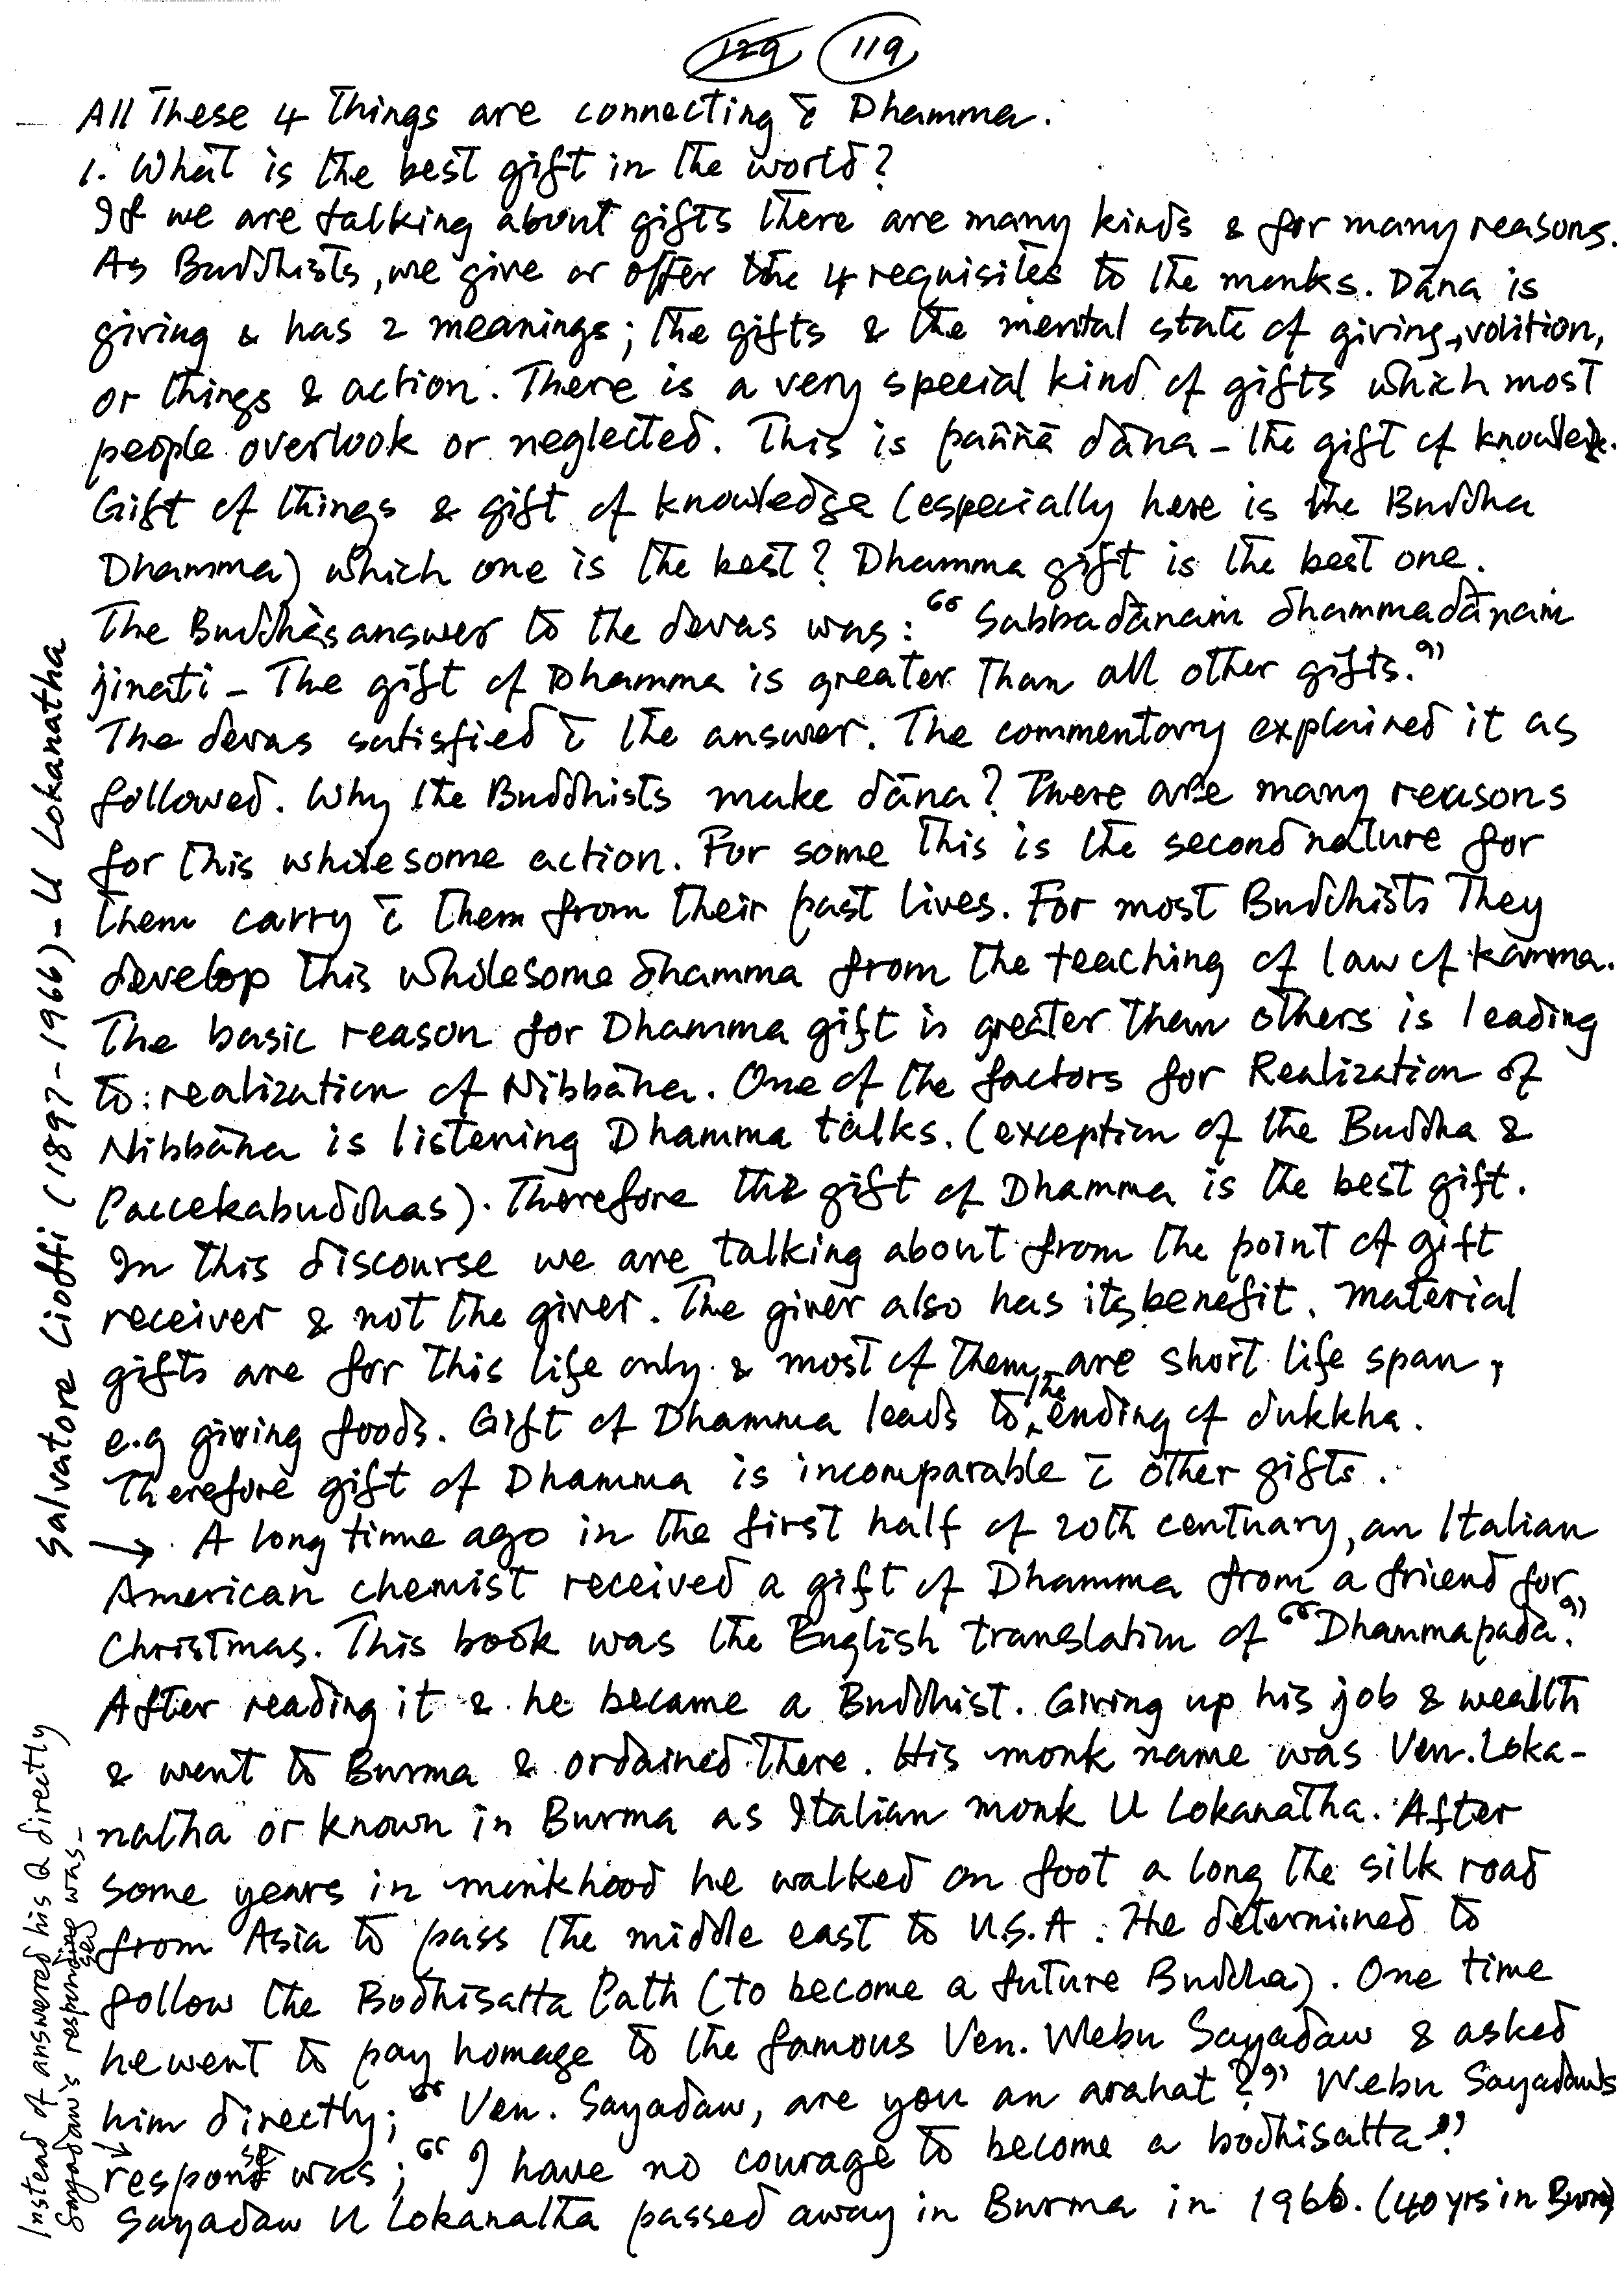 129 119
All These 4 Things are connecting c̄ Dhamma.
1. What is the best gift in the world?
If we are talking about gifts there are many kinds & for many reasons.
As Buddhists, we give or offer the 4 requisites to the monks. Dāna is
giving & has 2 meanings; the gifts & the mental state of giving, volition,
or things & action. There is a very special kind of gifts which most
people overlook or neglected. This is paññā dāna – the gift of knowledge.
Gift of things & gift of knowledge (especially here is the Buddha
Dhamma) which one is the best? Dhamma gift is the best one.
The Buddha's answer to the devas was: "Sabbadānaṁ dhammadānaṁ
jinati – The gift of Dhamma is greater than all other gifts."
The devas satisfied c̄ the answer. The commentary explained it as
followed. Why the Buddhists make dāna? There are many reasons
for this wholesome action. For some this is the second nature for
them carry c̄ them from their past lives. For most Buddhists they
develop this wholesome dhamma from the teaching of law of kamma.
The basic reason for Dhamma gift is greater them others is leading
to: realization of Nibbāna. One of the factors for Realization of
Nibbāna is listening Dhamma talks. (exception of the Buddha &
Paccekabuddhas). Therefore the gift of Dhamma is the best gift.
In this discourse we are talking about from the point of gift
receiver & not the giver. The giver also has its benefit. Material
gifts are for this life only & most of them are short life span,
e.g giving foods. Gift of Dhamma leads to the ending of dukkha.
Therefore gift of Dhamma is incomparable c̄ other gifts.
→ A long time ago in the first half of 20th centuary, an Italian
American chemist received a gift of Dhamma from a friend for
Christmas. This book was the English translation of "Dhammapada."
After reading it & he became a Buddhist. Giving up his job & wealth
& went to Burma & ordained there. His monk name was Ven. Loka-
natha or known in Burma as Italian monk U Lokanatha. After
some years in monkhood he walked on foot a long the silk road
from Asia to pass the middle east to U.S.A. He determined to
follow the Bodhisatta Path (to become a future Buddha). One time
he went to pay homage to the famous Ven. Webu Sayadaw & asked
him directly; "Ven. Sayadaw, are you an arahat?" Webu Sayadaw's
response was; "I have no courage to become a bodhisatta"
Sayadaw U Lokanatha passed away in Burma in 1966. (40 yrs in Burma)
Salvatore Cioffi (1897-1966) – U Lokanatha
Instead of answered his Q directly
Sayadaw's responding was –